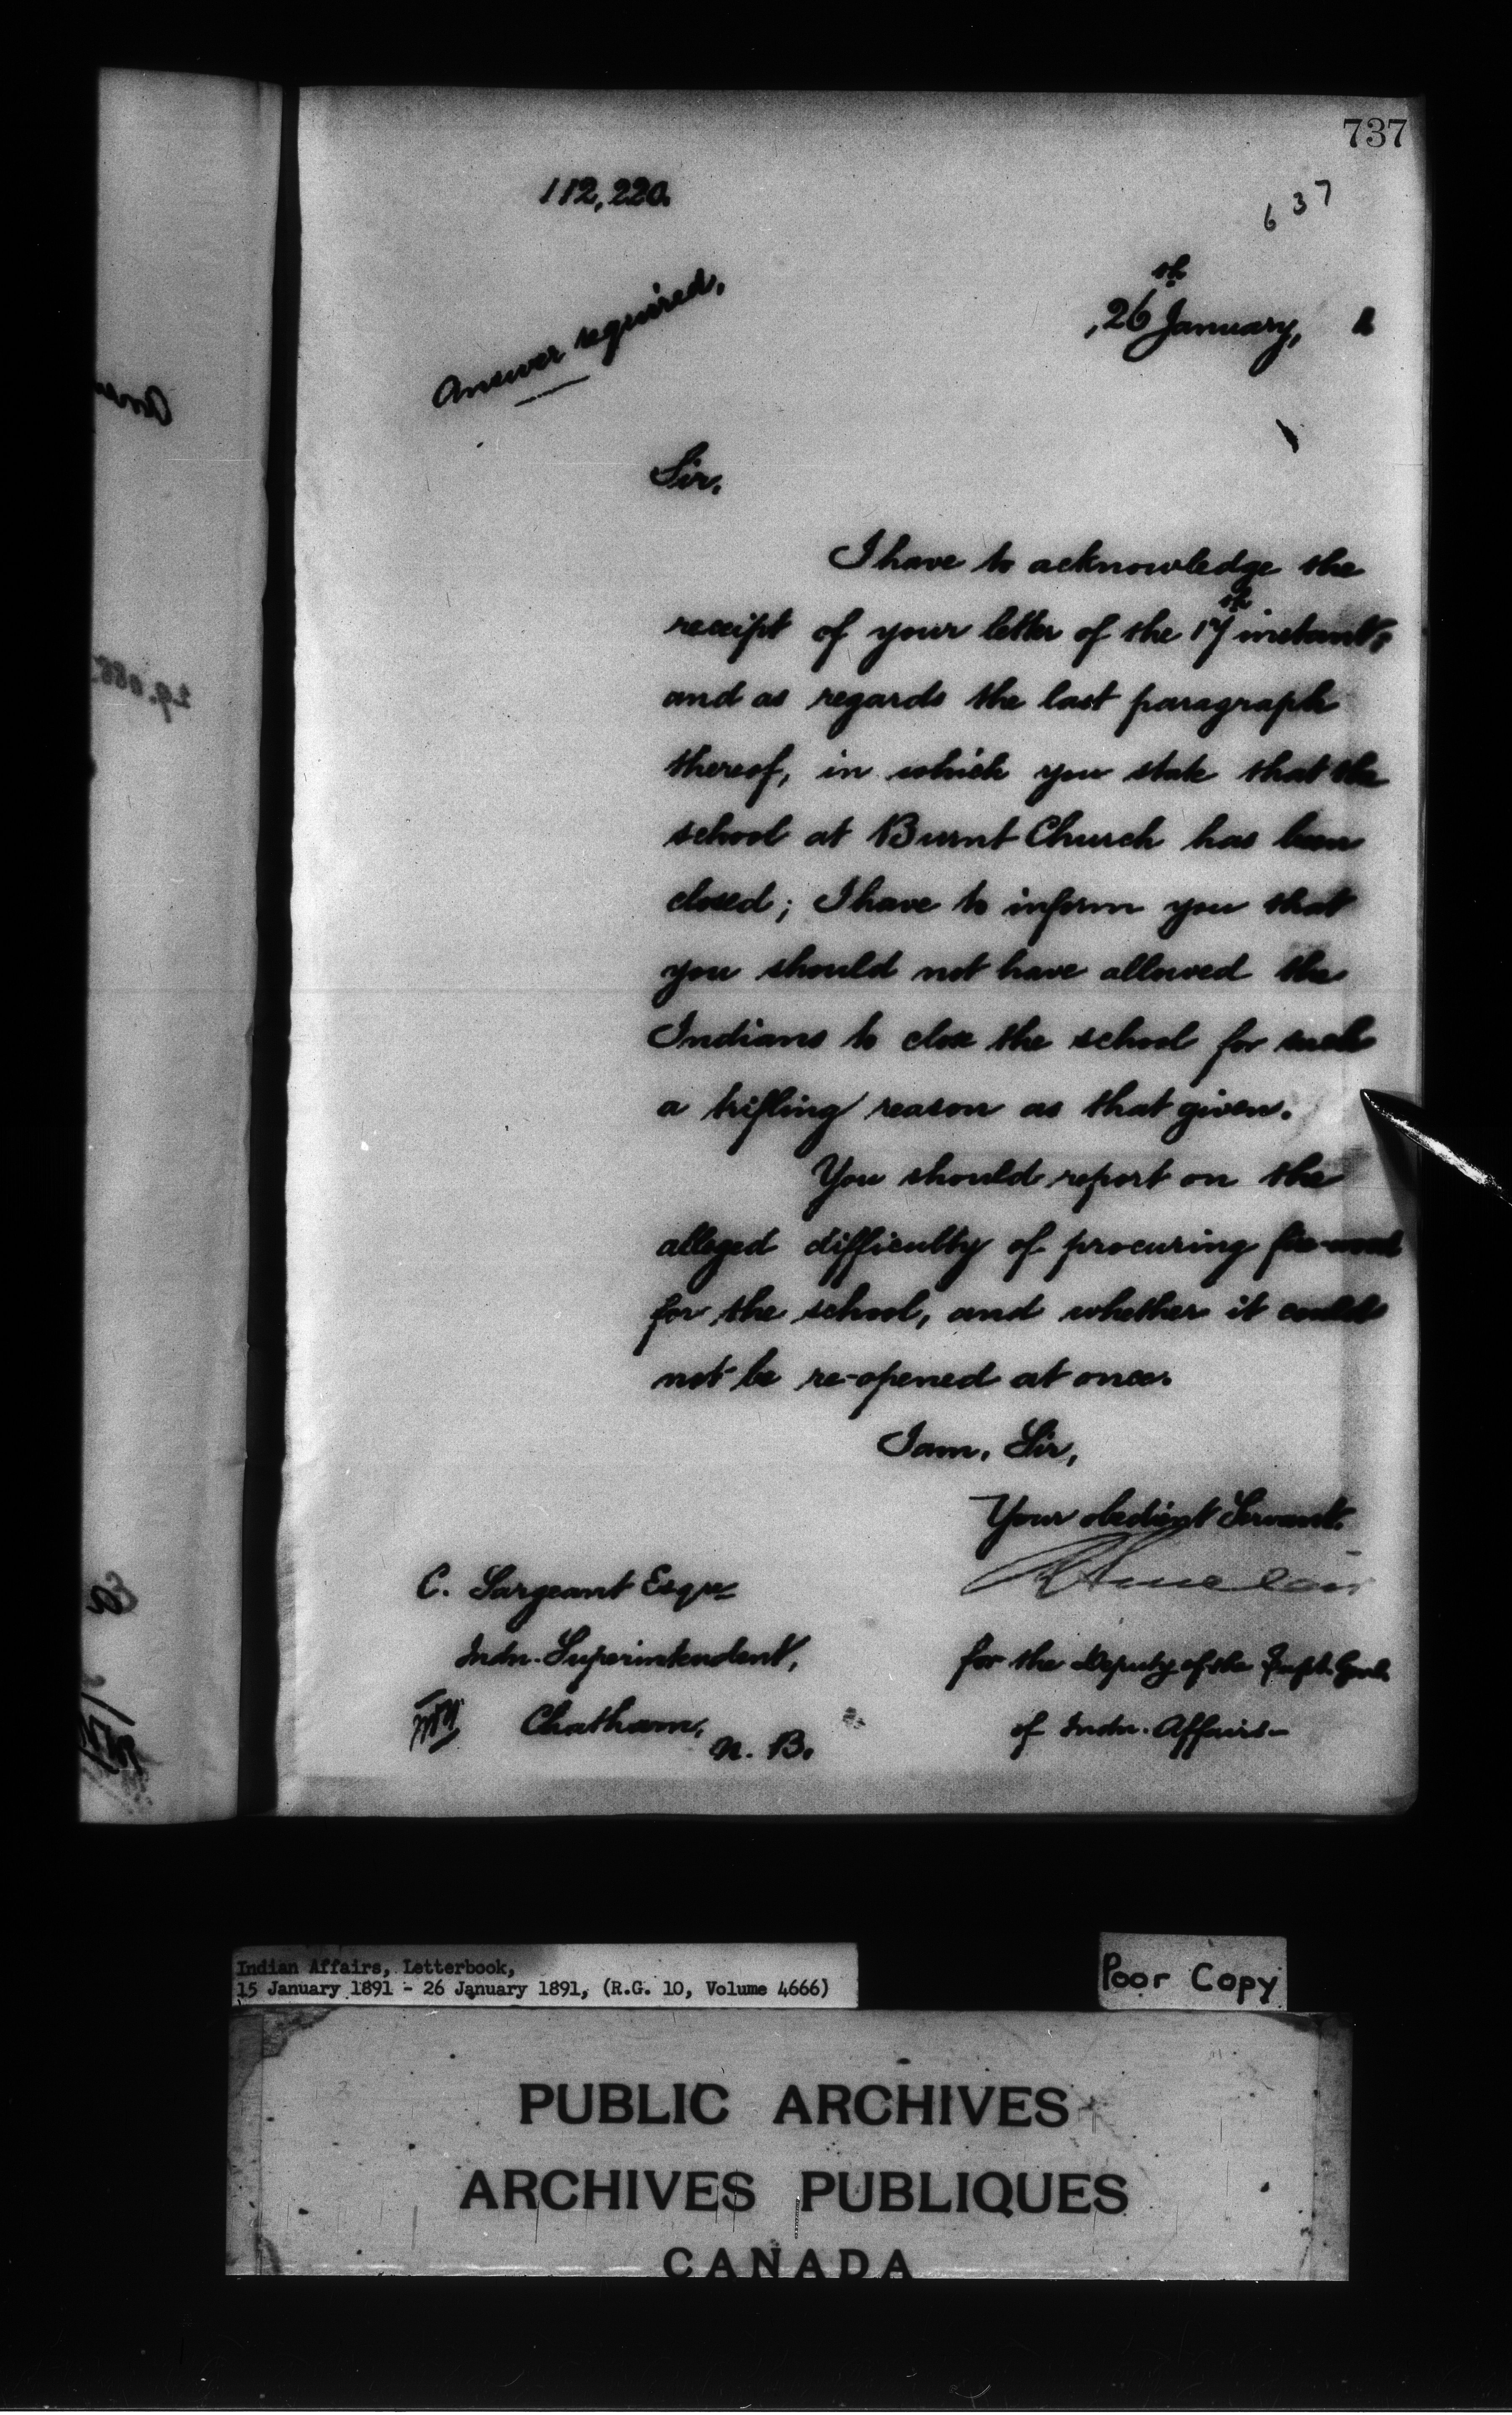 737
637
112,220.
Answer required.
26th January, 1
Sir,
I have to acknowledge the
receipt of your letter of the 17th instant,
and as regards the last paragraph
thereof, in which you state that the
school at Burnt Church has been
closed; I have to inform you that
you should not have allowed the
Indians to close the school for such
a trifling reason as that given.
You should report on the
alleged difficulty of procuring fire-wood
for the school, and whether it could
not be re-opened at once.
I am, Sir,
Your obedient Servant.
C. Sargeant Esqre
Indn. Superintendent,
Chatham,
N. B.
for the Deputy of the Supt. Genl.
of Indn. Affairs-
Indian Affairs, Letterbook,
15 January 1891 - 26 January 1891, (R.G. 10, Volume 4666)
Poor Copy
PUBLIC ARCHIVES
ARCHIVES PUBLIQUES
CANADA